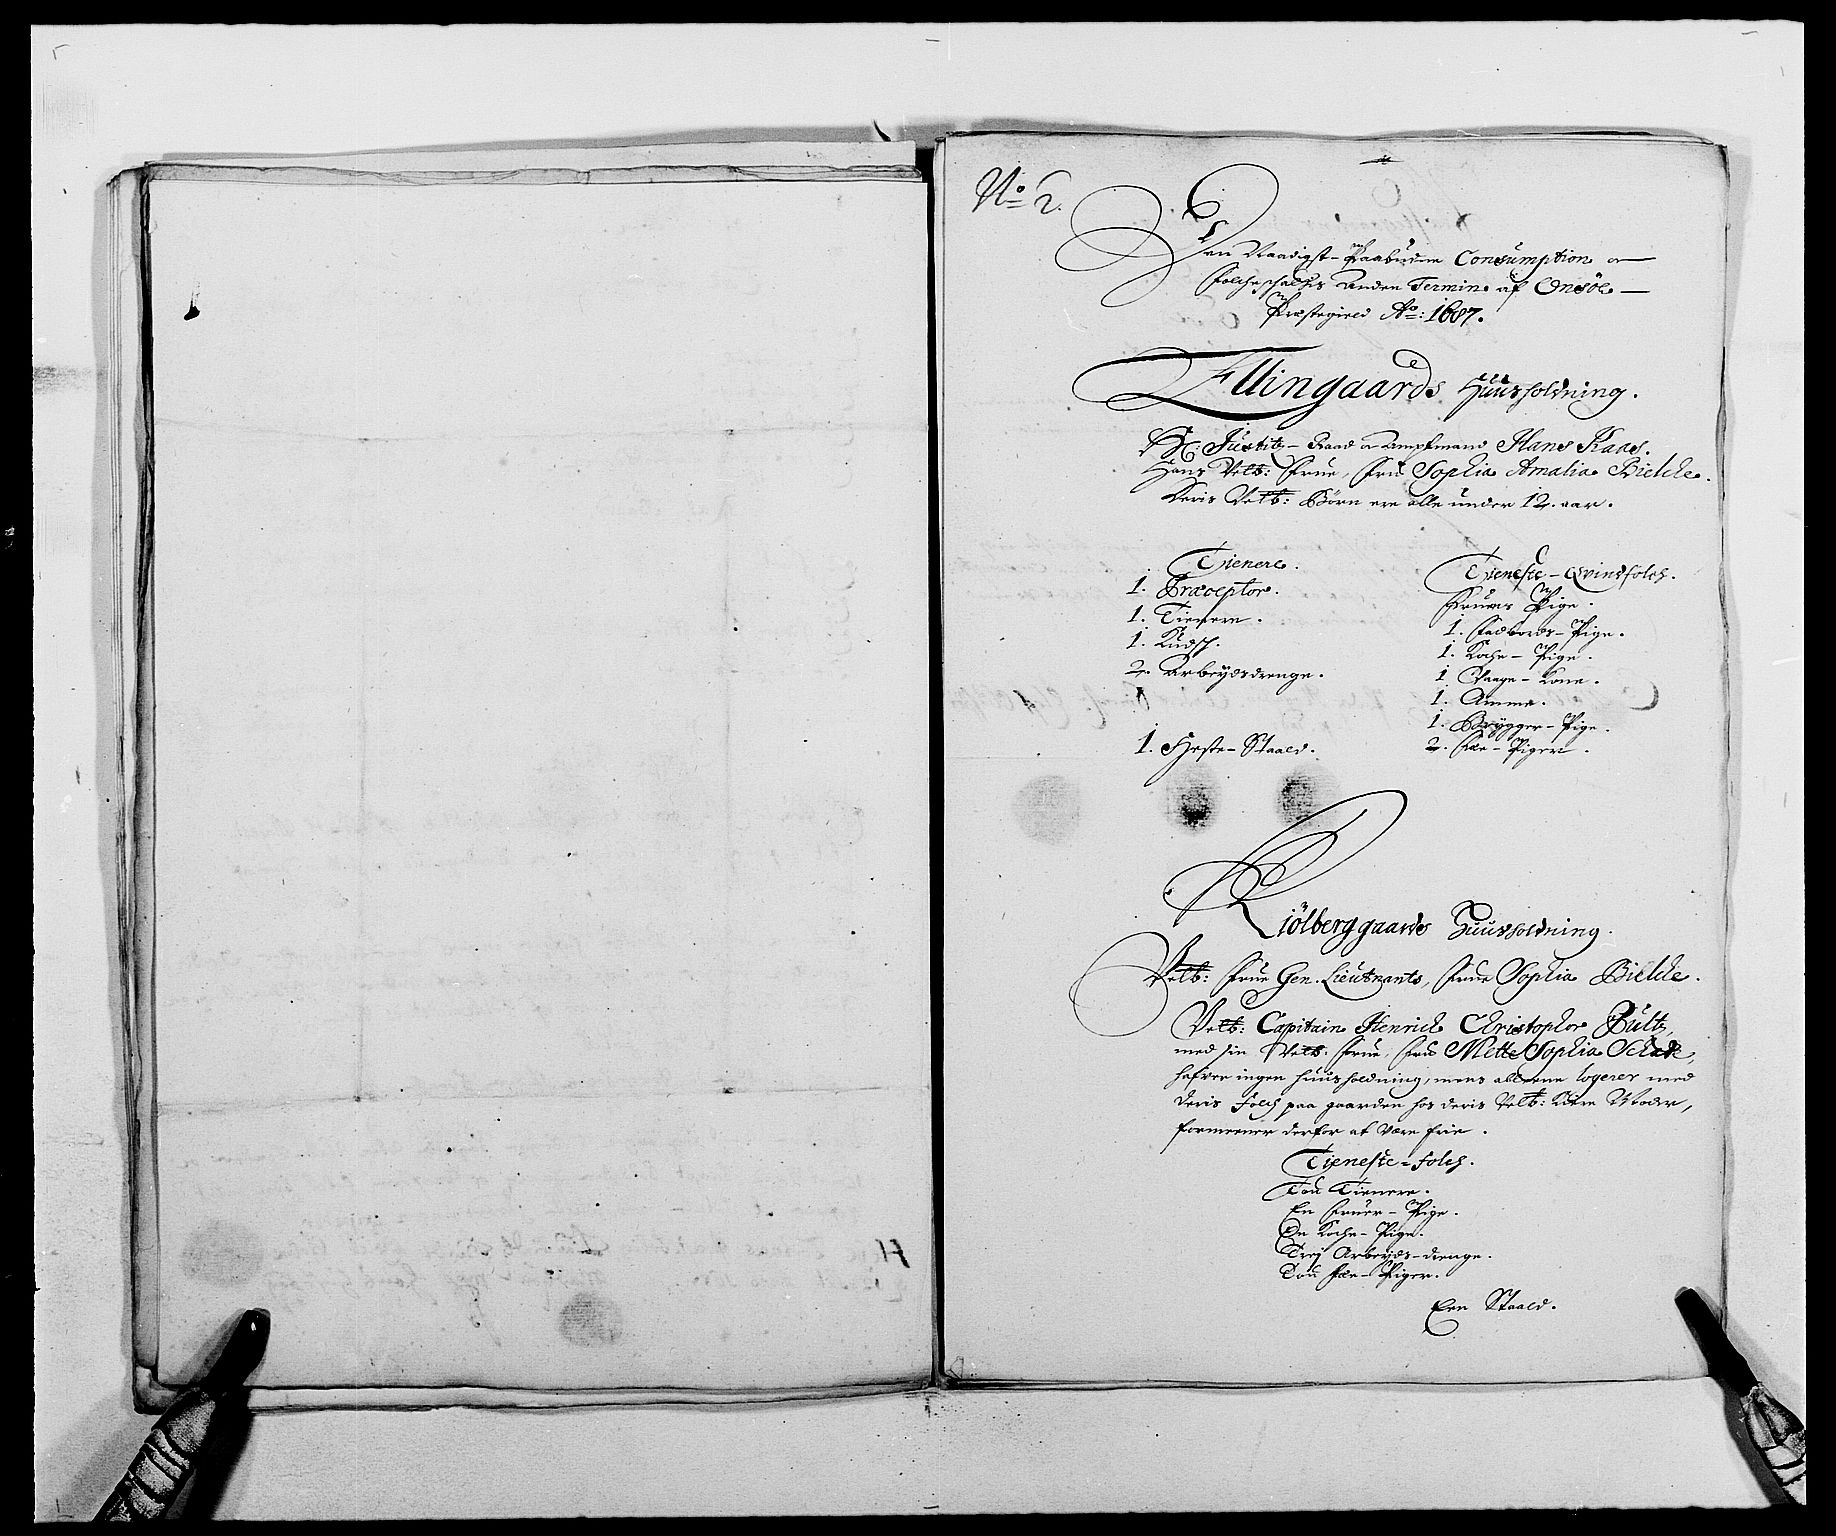 No 2.
Den Naadigst-Paabudne Consumption o
Folcheschatts Anden Termin af Onsöe
Præstegield Ao: 1687.
Ellingaards Huusholdning.
Hr: Justitz-Raad o Amptmand Hans Kaas.
Hans Velb: Frue, Fru Sophia Amalia Bielche.
Deris Velb: Börn ere alle under 12. aar.
Tienere.
1. Præceptor.
1. Tienere.
1. Kudsch.
2. Arbeydsdrenge.
1. Heste-Staald.
Tieneste-Qvindfolch.
Fruens Pige.
1. Fadbords-Pige.
1. Koche-Pige.
1 Vaage-Kone.
1. Amme.
1. Brÿgger-Pige.
2. Fæe-Piger.
Kiölberggaards Huusholdning.
Velb: Frue Gen. Lieutnants, Frue Sophia Bielche.
Velb: Capitain Henrich Christopher Bültz,
med sin Velb: Frue, Fru Mette Sophia Schade,
hafver ingen huusholdning, mens alleene logerer med
deris Folch paa gaarden hos deris Velb: Kiere Moder,
formeener derfor at være frie.
Tieneste-folch.
Tou Tienere.
En Fruer-Pige.
En Koche-Pige.
Trej Arbeyds-drenge.
Tou Fæe-Piger.
Een Staald.